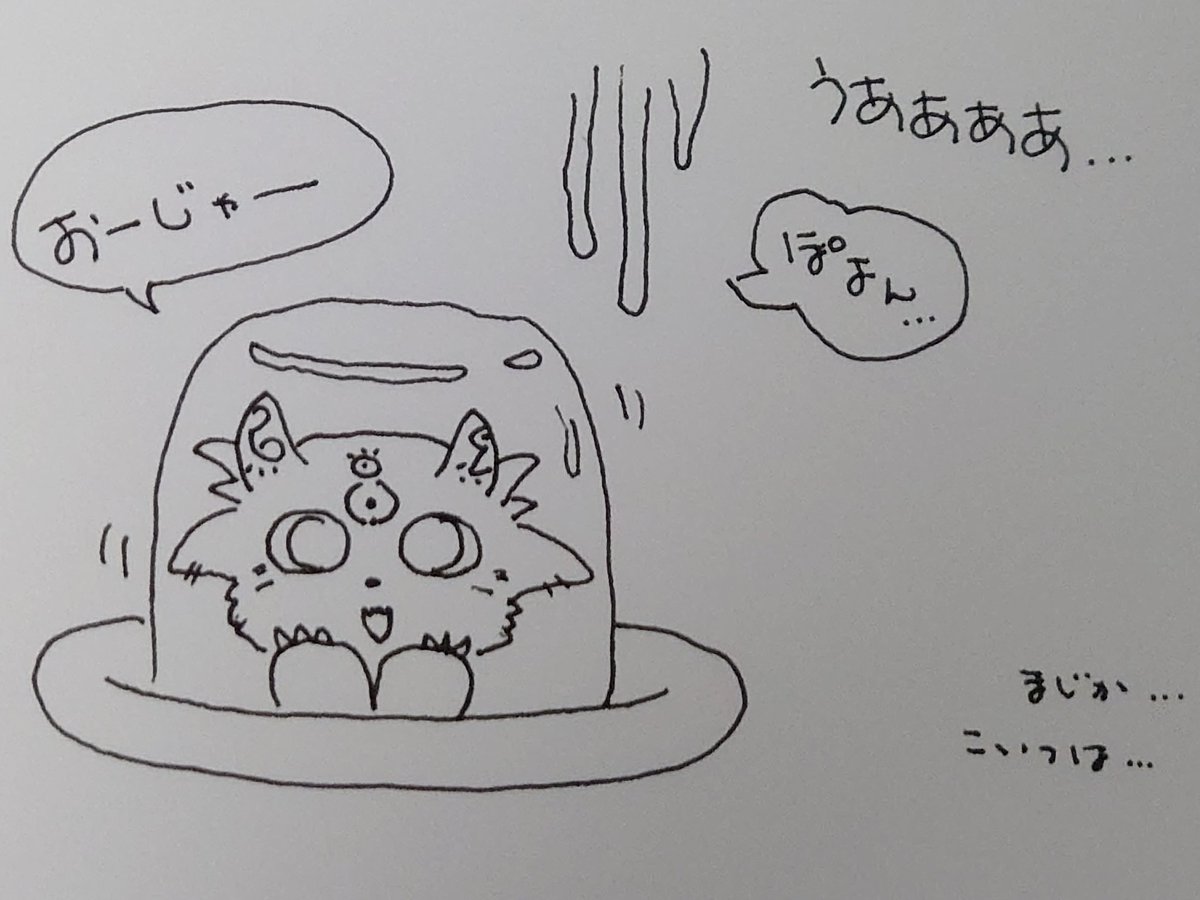 うあぁぁあ...
おーじゃー
ぽよん...
まじか...
こいつは...